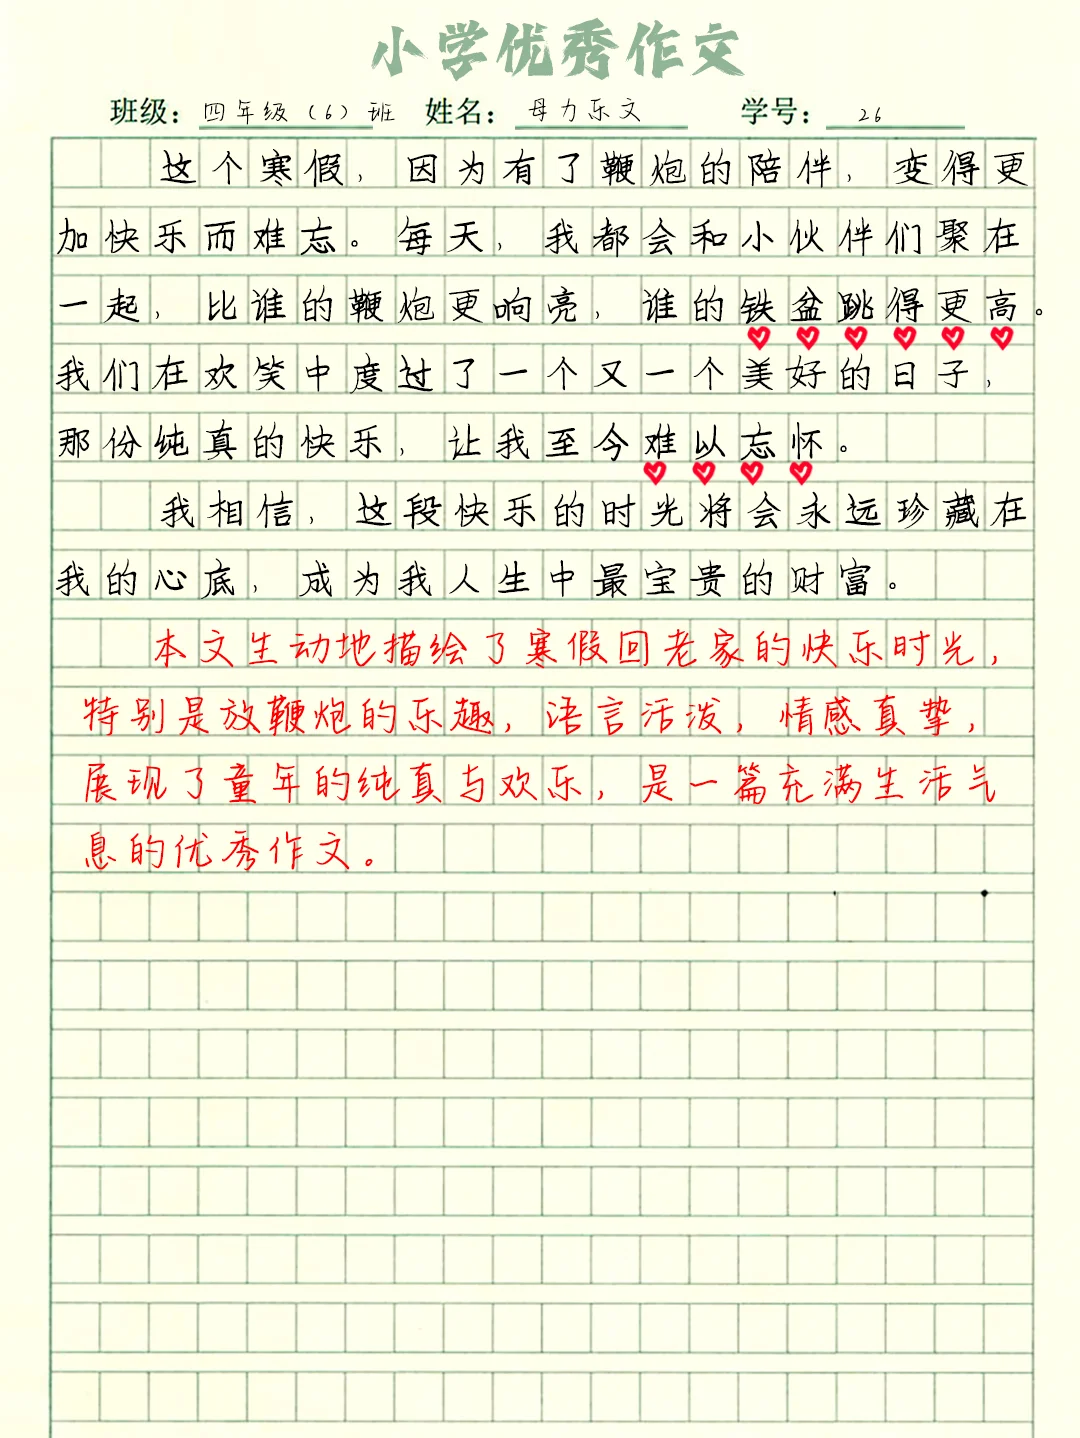 小学优秀作文
班级：四年级（6）班 姓名：母力乐文 学号：26
这个寒假，因为有了鞭炮的陪伴，变得更
加快乐而难忘。每天，我都会和小伙伴们聚在
一起，比谁的鞭炮更响亮，谁的铁盆跳得更高。
我们在欢笑中度过了一个又一个美好的日子，
那份纯真的快乐，让我至今难以忘怀。
我相信，这段快乐的时光将会永远珍藏在
我的心底，成为我人生中最宝贵的财富。
本文生动地描绘了寒假回老家的快乐时光，
特别是放鞭炮的乐趣，语言活泼，情感真挚，
展现了童年的纯真与欢乐，是一篇充满生活气
息的优秀作文。